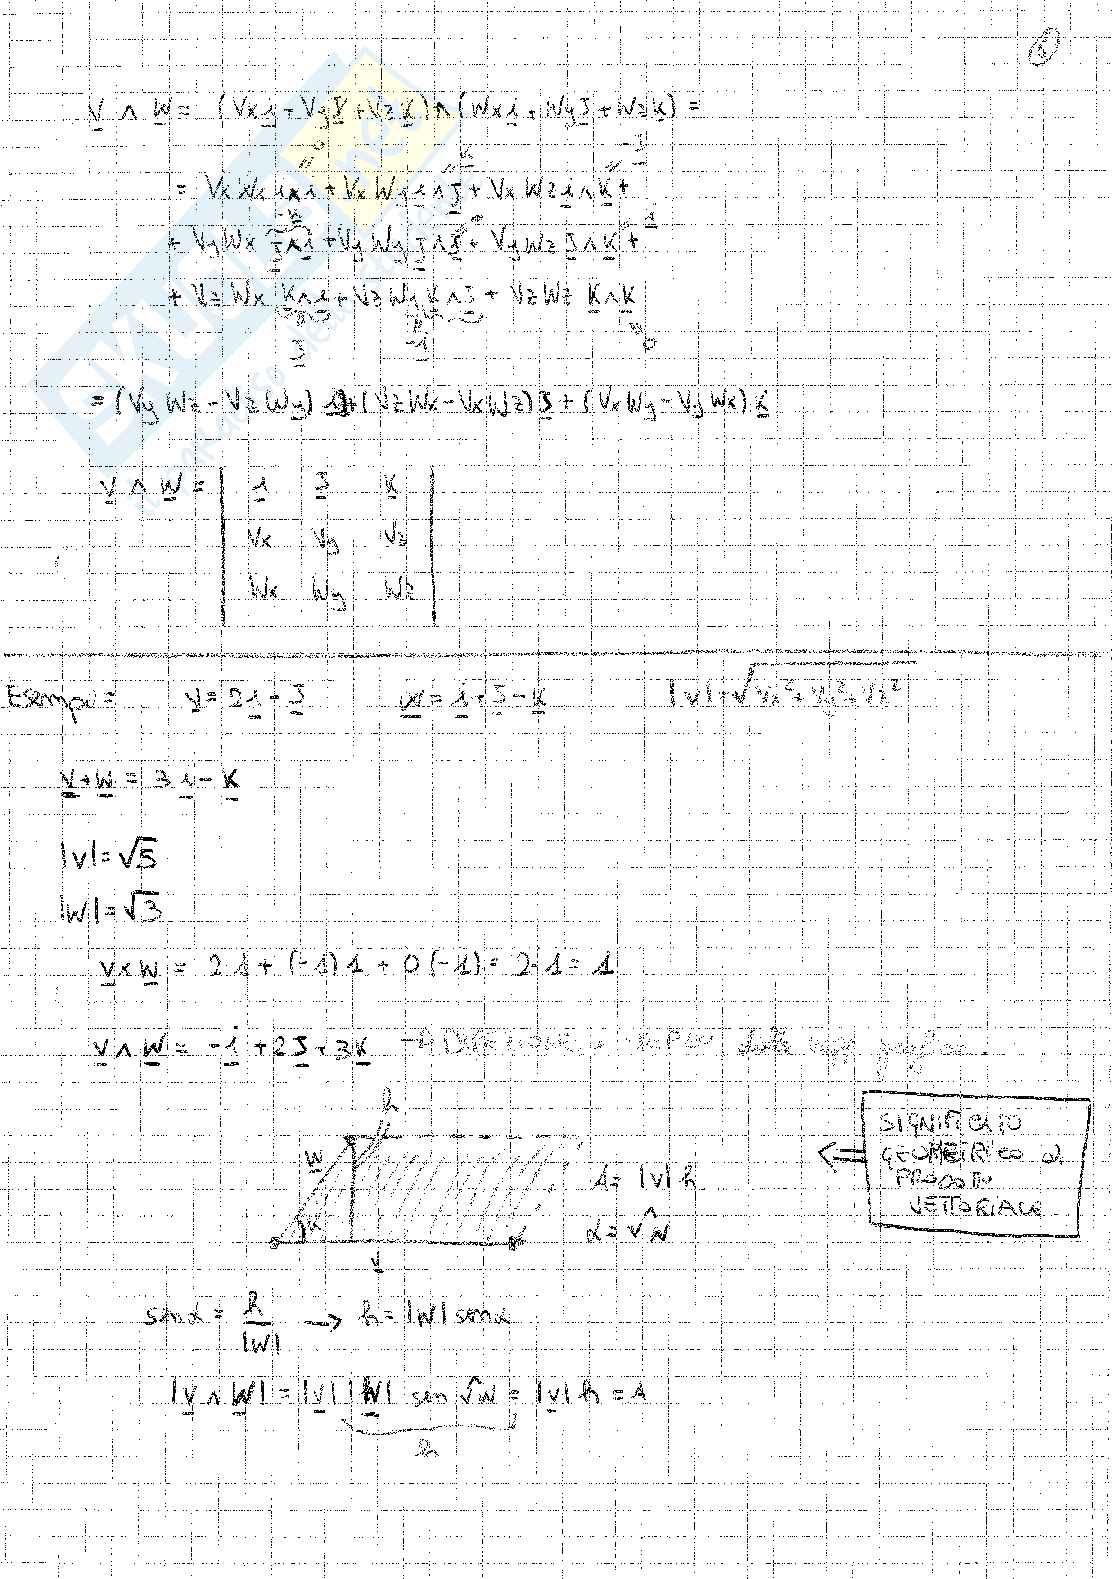 V ∧ W = (Vx i + Vy J + Vz K) ∧ (Wx i + Wy J + Wz K) =
= Vx Wx i∧i + Vx Wy i∧J + Vx Wz i∧K +
+ Vy Wx J∧i + Vy Wy J∧J + Vy Wz J∧K +
+ Vz Wx K∧i + Vz Wy K∧J + Vz Wz K∧K
J -i 0
= (Vy Wz - Vz Wy) i + (Vz Wx - Vx Wz) J + (Vx Wy - Vy Wx) K
V ∧ W = | i J K |
| Vx Vy Vz |
| Wx Wy Wz |
Esempi: V = 2i - J W = i + J - K |V| = √Vx² + Vy² + Vz²
V + W = 3i - K
|V| = √5
|W| = √3
V × W = 2·1 + (-1)1 + 0(-1) = 2-1 = 1
V ∧ W = -i + 2J + 3K
h
W
A = |V| h
α
α = VW
V
SIGNIFICATO
GEOMETRICO di
PRODOTTO
VETTORIALE
sin α = h / |W| → h = |W| sin α
|V ∧ W| = |V| |W| sen VW = |V| h = A
h